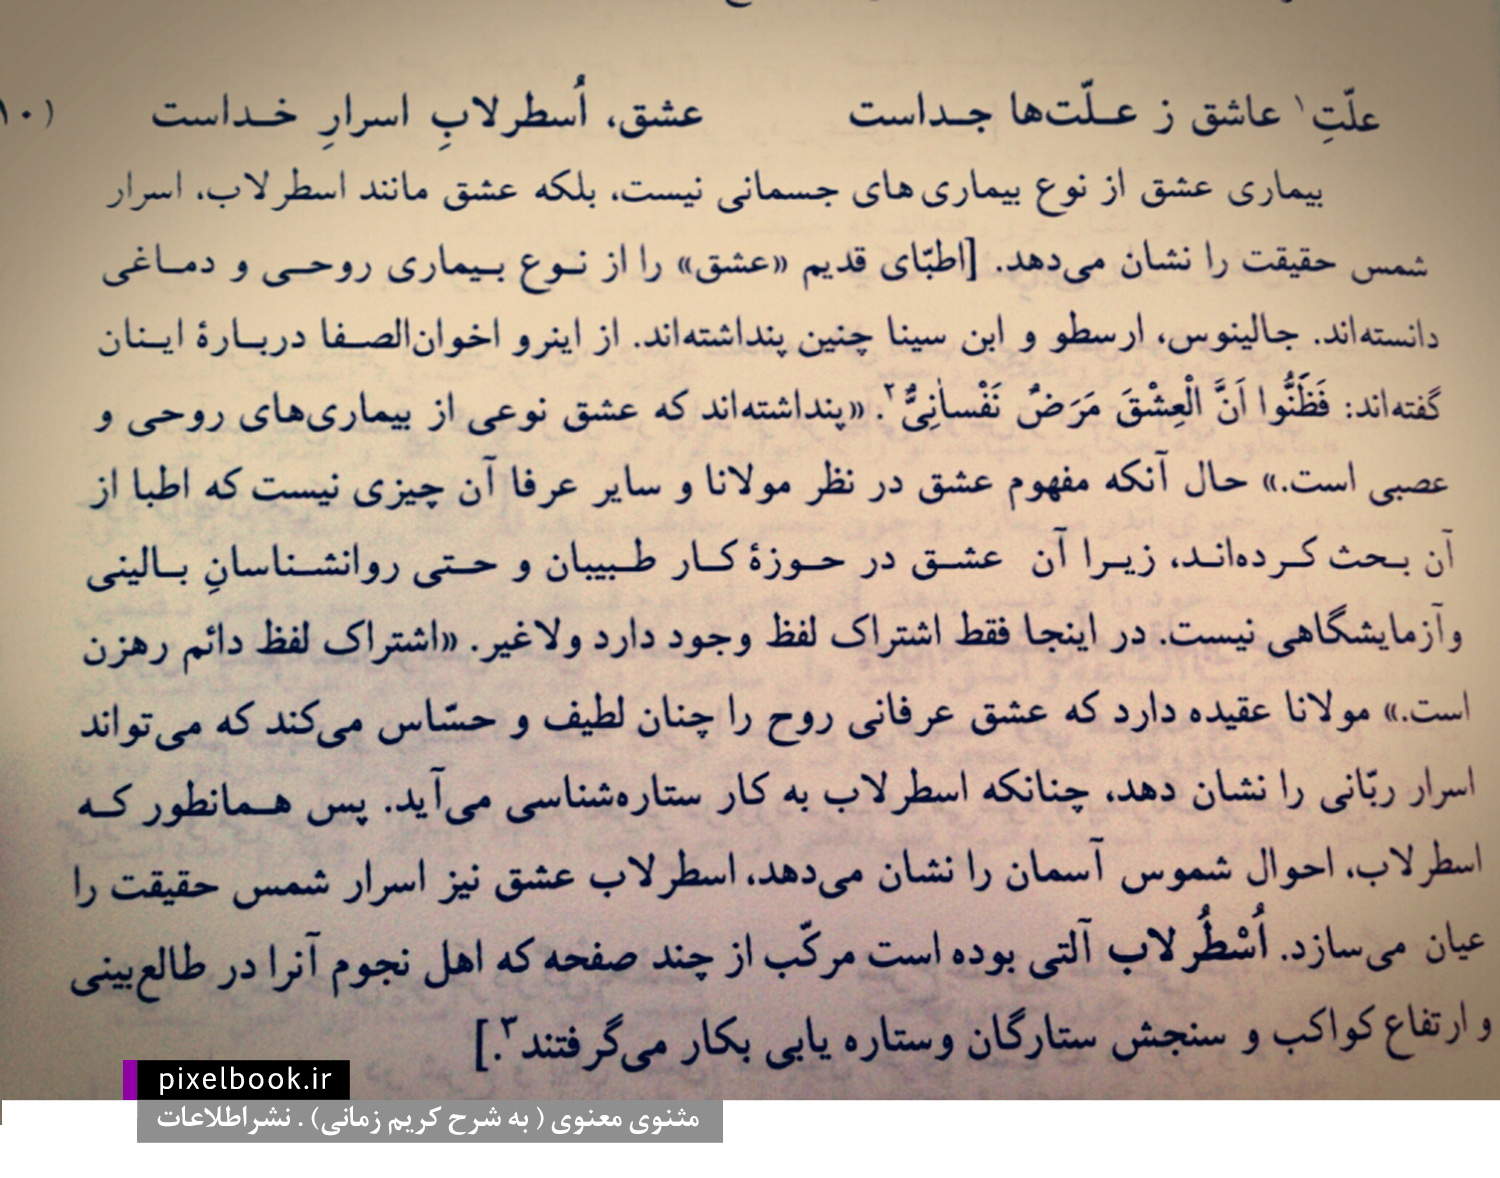 علّتِ۱ عاشق ز عـلّت‌ها جـداست عشق، اُسطرلابِ اسرارِ خـداست (۱۰
بیماری عشق از نوع بیماری‌های جسمانی نیست، بلکه عشق مانند اسطرلاب، اسرار
شمس حقیقت را نشان می‌دهد. [اطبّای قدیم «عشق» را از نـوع بـیماری روحـی و دمـاغی
دانسته‌اند. جالینوس، ارسطو و ابن سینا چنین پنداشته‌اند. از اینرو اخوان‌الصـفا دربـارۀ ایـنان
گفته‌اند: فَظَنُّوا اَنَّ الْعِشْقَ مَرَضٌ نَفْسانِیٌّ۲. «پنداشته‌اند که عشق نوعی از بیماری‌های روحی و
عصبی است.» حال آنکه مفهوم عشق در نظر مولانا و سایر عرفا آن چیزی نیست که اطبا از
آن بـحث کـرده‌انـد، زیـرا آن عشـق در حـوزۀ کـار طـبیبان و حـتی روانشـناسانِ بـالینی
وآزمایشگاهی نیست. در اینجا فقط اشتراک لفظ وجود دارد ولاغیر. «اشتراک لفظ دائم رهزن
است.» مولانا عقیده دارد که عشق عرفانی روح را چنان لطیف و حسّاس می‌کند که می‌تواند
اسرار ربّانی را نشان دهد، چنانکه اسطرلاب به کار ستاره‌شناسی می‌آید. پس هـمانطور کـه
اسطرلاب، احوال شموس آسمان را نشان می‌دهد، اسطرلاب عشق نیز اسرار شمس حقیقت را
عیان می‌سازد. اُسْطُرلاب آلتی بوده است مرکّب از چند صفحه که اهل نجوم آنرا در طالع‌بینی
و ارتفاع کواکب و سنجش ستارگان وستاره یابی بکار می‌گرفتند۳.]
pixelbook.ir
مثنوی معنوی ( به شرح کریم زمانی) . نشراطلاعات